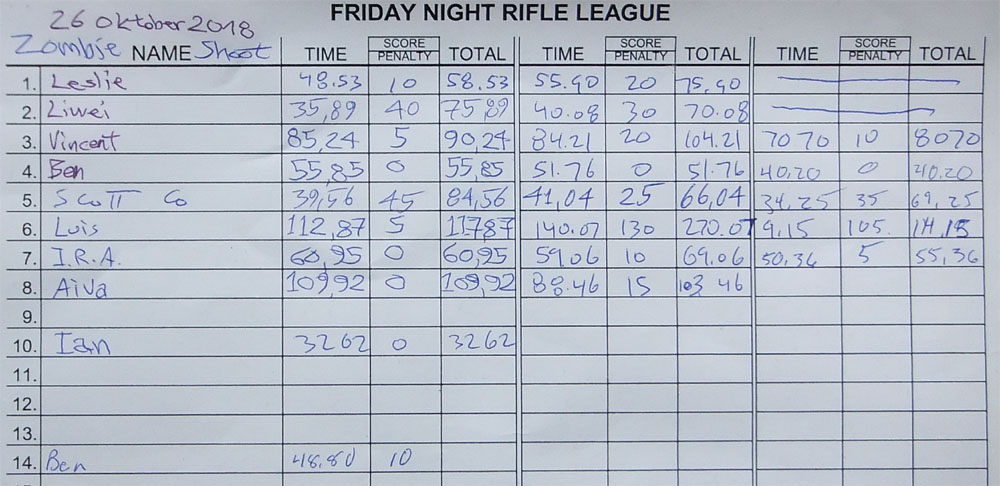 FRIDAY NIGHT RIFLE LEAGUE
26 Oktober 2018
Zombie NAME Shoot TIME SCORE PENALTY TOTAL TIME SCORE PENALTY TOTAL TIME SCORE PENALTY TOTAL
1. Leslie 48.53 10 58.53 55.90 20 75.90
2. Liwei 35,89 40 75,89 40.08 30 70.08
3. Vincent 85,24 5 90,24 84.21 20 104.21 70 70 10 80 70
4. Ben 55,85 0 55,85 51.76 0 51.76 40.20 0 40.20
5. SCOTT Co 39,56 45 84,56 41,04 25 66,04 34,25 35 69,25
6. Luis 112,87 5 117,87 140.07 130 270.07 9.15 105. 114,15
7. I.R.A. 60,95 0 60,95 59.06 10 69.06 50,36 5 55,36
8. Aiva 109,92 0 109,92 88.46 15 103 46
9.
10. Ian 32 62 0 32 62
11.
12.
13.
14. Ben 48,80 10